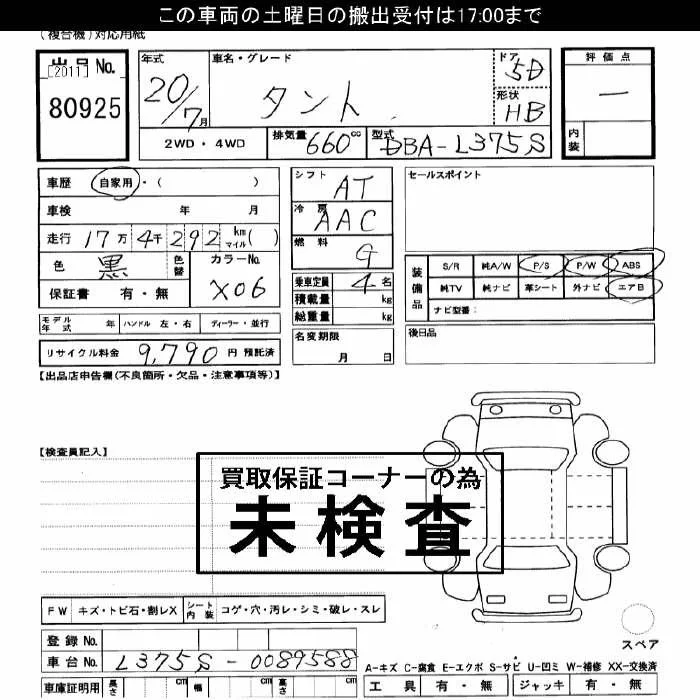 この車両の土曜日の搬出受付は17:00まで
(複合機)対応用紙
出品No.
[2011]
80925
年式
20/7月
車名・グレード
タント
ドア
5D
形状
HB
評価点
一
内装
2WD・4WD
排気量
660cc
型式
DBA-L375S
車歴 自家用・( )
車検 年 月
走行 17万4千292km マイル( )
色 黒
色替
カラーNo.
X06
保証書 有・無
シフト
AT
冷房
AAC
燃料
G
乗車定員 4名
積載量 kg
総重量 kg
セールスポイント
装備品
S/R 純A/W P/S P/W ABS
純TV 純ナビ 革シート 外ナビ エアB
ナビ型番:
モデル年式 年 ハンドル 左・右 ディーラー・並行
名変期限
月 日
後日品
リサイクル料金 9,790 円 預託済
【出品店申告欄(不良箇所・欠品・注意事項等)】
【検査員記入】
買取保証コーナーの為
未検査
FW キズ・トビ石・割レX シート内装 コゲ・穴・汚レ・シミ・破レ・スレ
スペア
登録No.
車台No. L375S-0089588
A-キズ C-腐食 E-エクボ S-サビ U-凹ミ W-補修 XX-交換済
車庫証明用 長さ cm 幅 cm 高さ cm
工具 有・無 ジャッキ 有・無